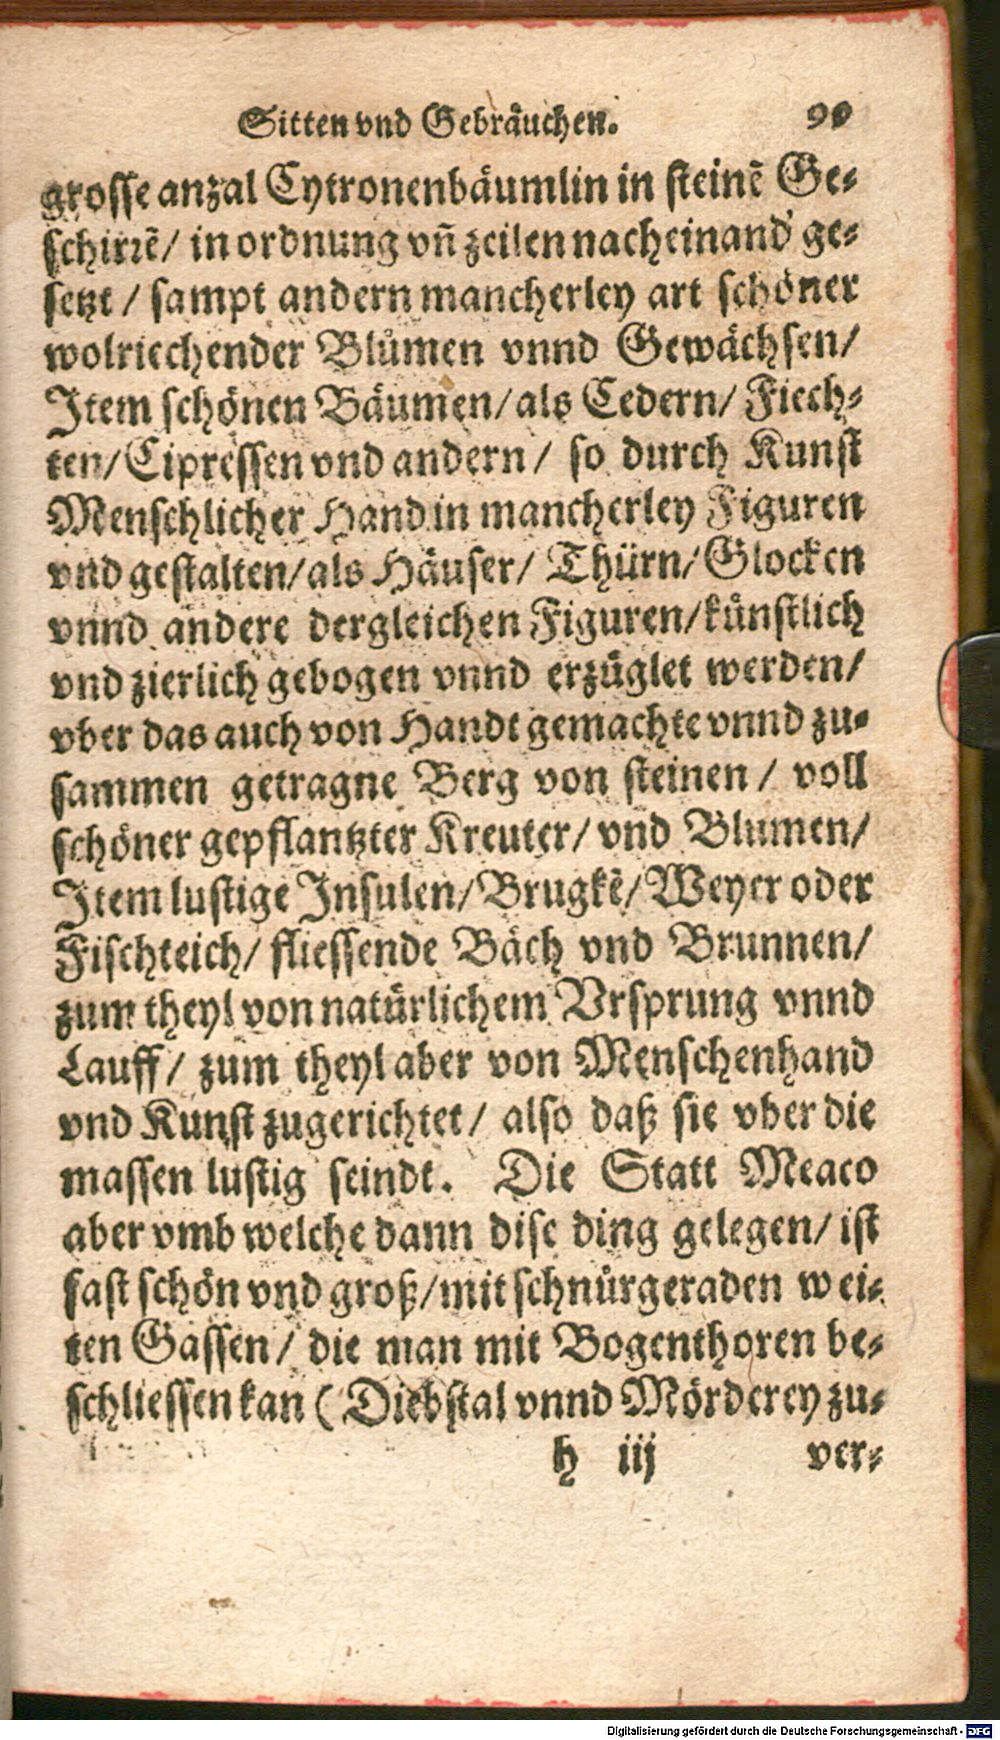 Sitten vnd Gebräuchen. 90
grosse anzal Cytronenbäumlin in steinē Ge-
schirrē/ in ordnung vñ zeilen nacheinand' ge-
setzt / sampt andern mancherley art schöner
wolriechender Blůmen vnnd Gewächsen/
Item schönen Bäumen/ als Cedern/ Fiech-
ten/ Cipressen vnd andern / so durch Kunst
Menschlicher Hand in mancherley Figuren
vnd gestalten/ als Häuser/ Thürn/ Glocken
vnnd andere dergleichen Figuren/ künstlich
vnd zierlich gebogen vnnd erzüglet werden/
vber das auch von Handt gemachte vnnd zu-
sammen getragne Berg von steinen / voll
schöner gepflantzter Kreuter/ vnd Blumen/
Item lustige Insulen/ Brugkē/ Weyer oder
Fischteich/ fliessende Bäch vnd Brunnen/
zum theyl von natürlichem Vrsprung vnnd
Lauff/ zum theyl aber von Menschenhand
vnd Kunst zugerichtet/ also daß sie vber die
massen lustig seindt. Die Statt Meaco
aber vmb welche dann dise ding gelegen/ ist
fast schön vnd groß/ mit schnürgeraden wei-
ten Gassen/ die man mit Bogenthoren be-
schliessen kan ( Diebstal vnnd Mörderey zu-
h iij ver-
Digitalisierung gefördert durch die Deutsche Forschungsgemeinschaft - DFG